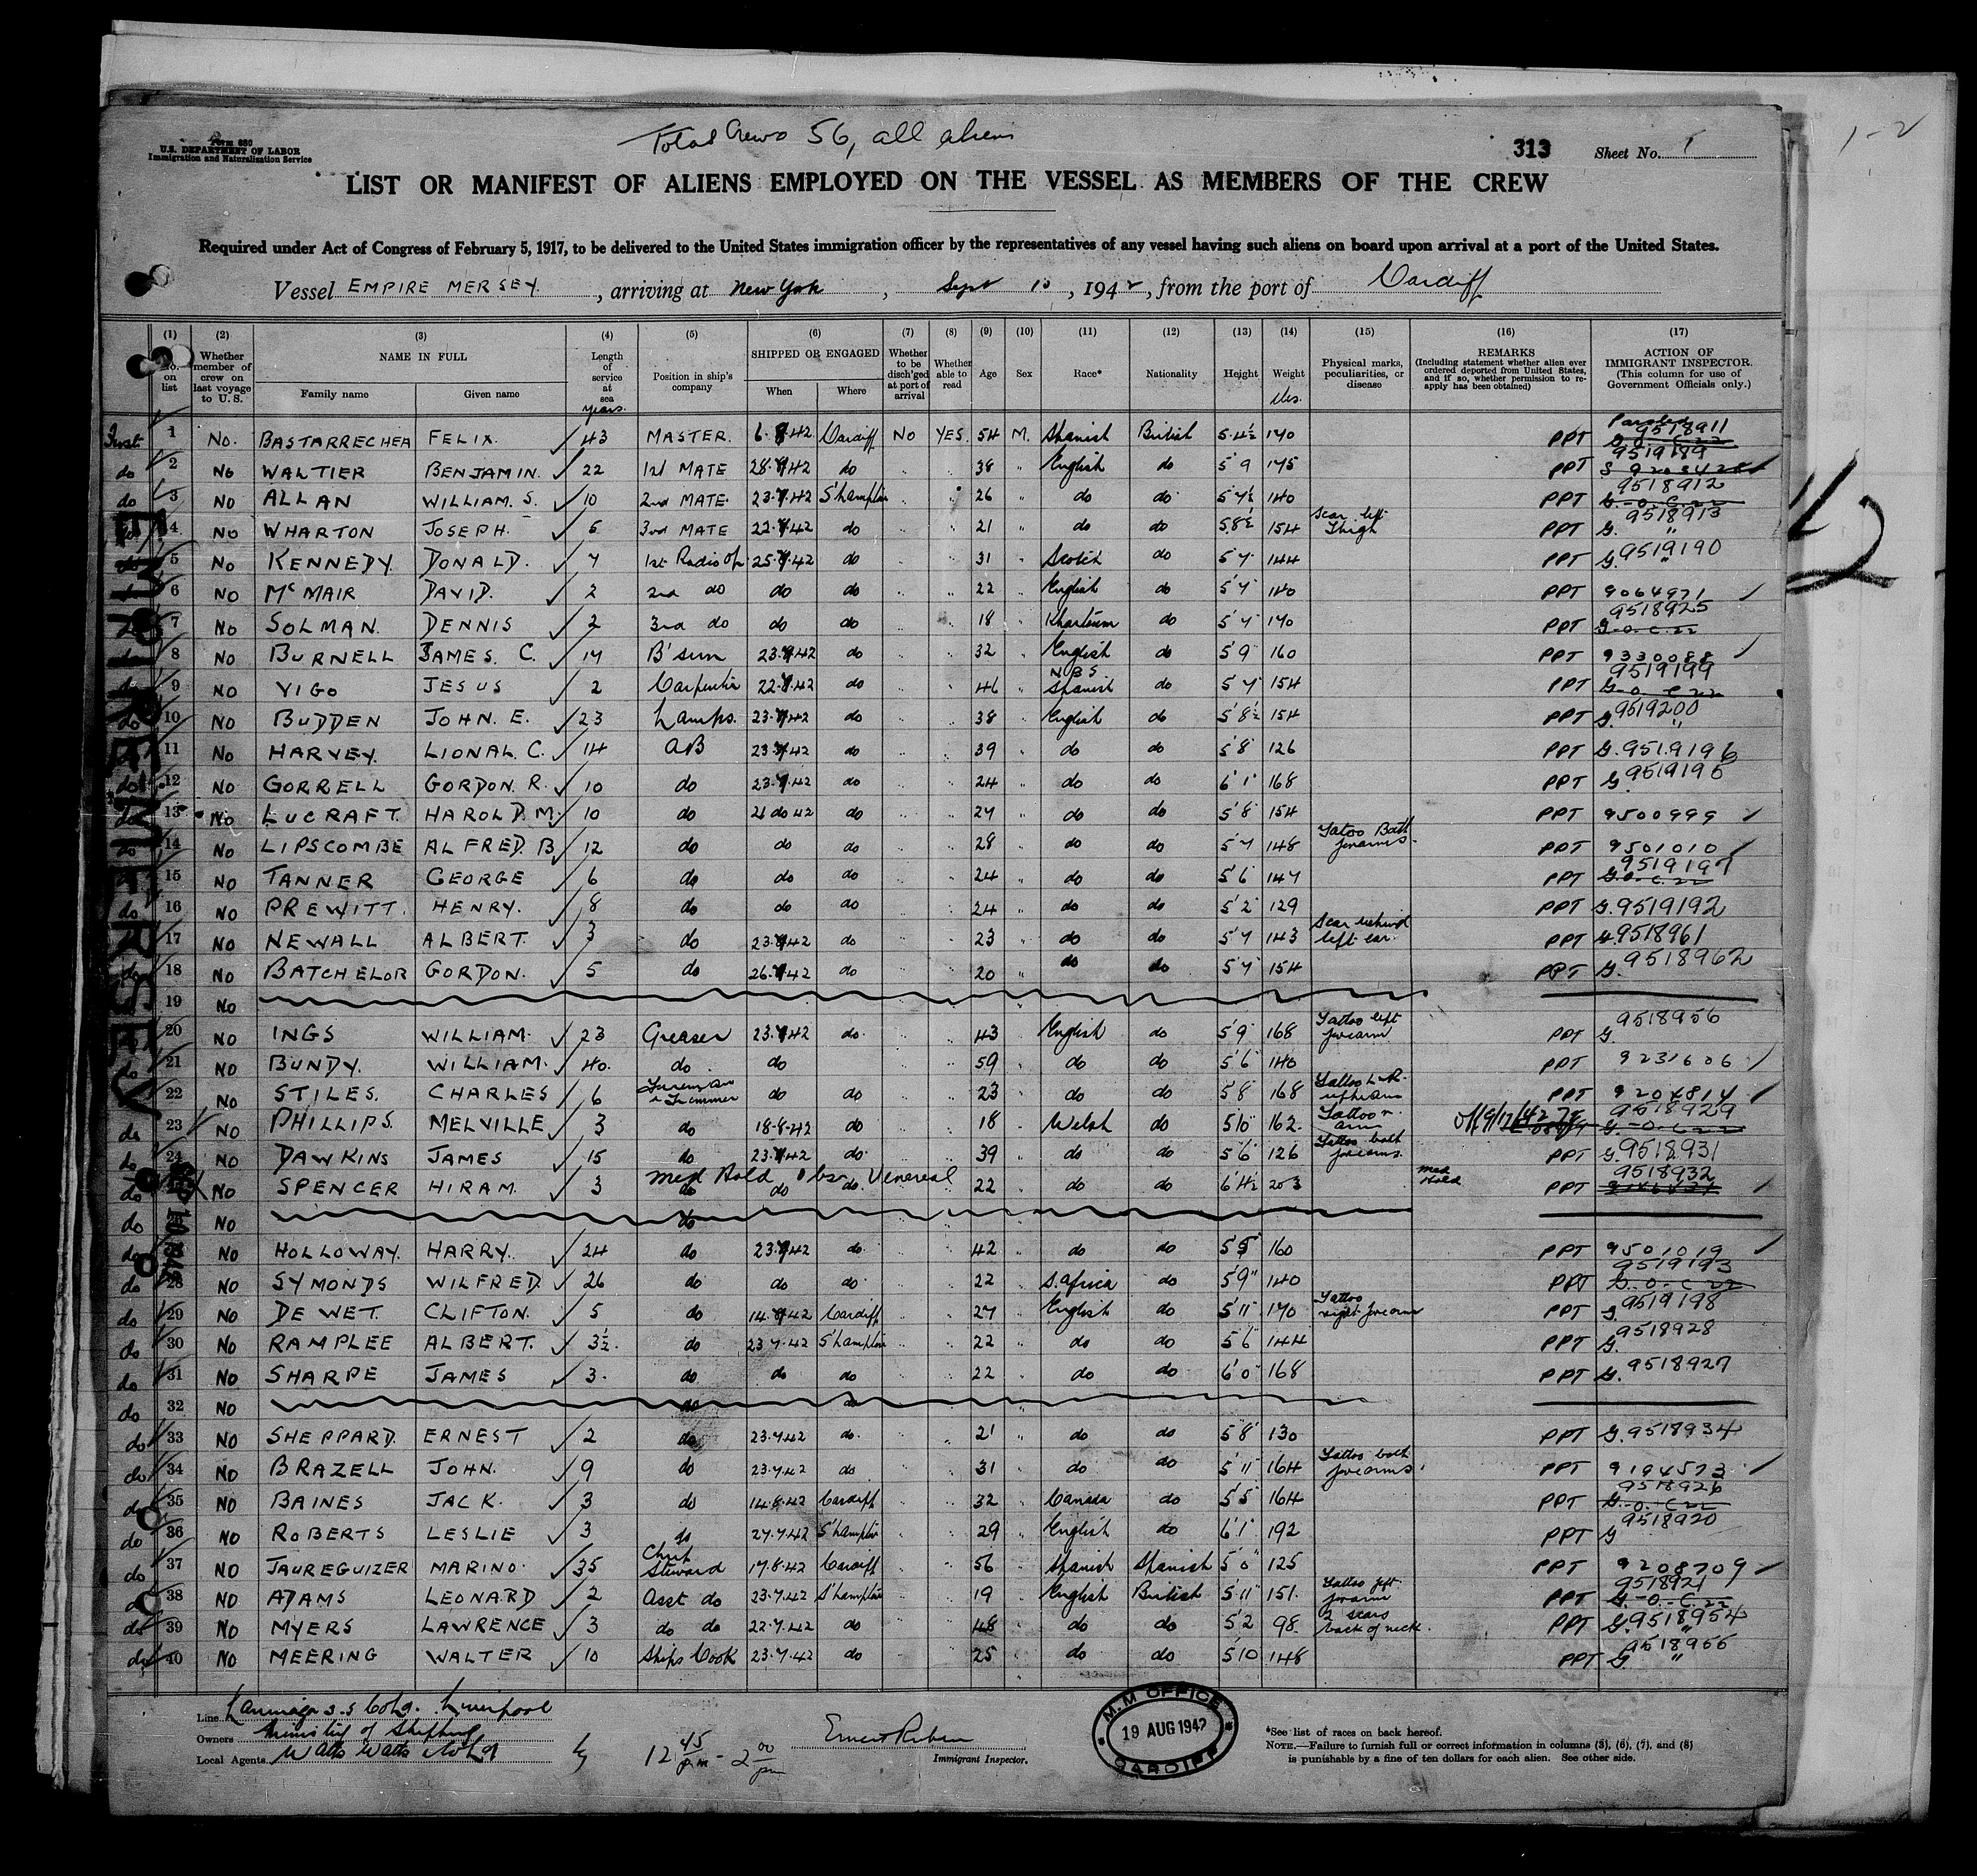 Total Crews 56, all aliens
Form 680
U.S. DEPARTMENT OF LABOR
Immigration and Naturalization Service
313 Sheet No. 1
1-2
LIST OR MANIFEST OF ALIENS EMPLOYED ON THE VESSEL AS MEMBERS OF THE CREW
Required under Act of Congress of February 5, 1917, to be delivered to the United States immigration officer by the representatives of any vessel having such aliens on board upon arrival at a port of the United States.
Vessel EMPIRE MERSEY, arriving at New York, Sept 10, 1942, from the port of Cardiff
(1) (2) (3) (4) (5) (6) (7) (8) (9) (10) (11) (12) (13) (14) (15) (16) (17)
No. on list
Whether member of crew on last voyage to U. S.
NAME IN FULL
Family name Given name
Length of service at sea years.
Position in ship's company
SHIPPED OR ENGAGED
When Where
Whether to be disch'ged at port of arrival
Whether able to read
Age Sex Race* Nationality Height Weight lbs.
Physical marks, peculiarities, or disease
REMARKS
(Including statement whether alien ever ordered deported from United States, and if so, whether permission to re-apply has been obtained)
ACTION OF IMMIGRANT INSPECTOR.
(This column for use of Government Officials only.)
First 1 No. BASTARRECHEA FELIX. 43 MASTER. 6.8.42 Cardiff NO YES. 54 M. Spanish British 5.4½ 140 PPT 9518911
do 2 No WALTIER BENJAMIN. 22 1st MATE 28.7.42 do 38 English do 5 9 175 PPT 9519189
do 3 NO ALLAN WILLIAM. S. 10 2nd MATE. 23.7.42 S'hampton 26 do do 5 7½ 140 PPT 9518912
4 NO WHARTON JOSEPH. 5 3rd MATE 22.7.42 do 21 do do 5.8½ 154 Scar left Thigh PPT G. 9518913
5 No KENNEDY DONALD. 7 1st Radio Op. 25.7.42 do 31 Scotch do 5 7 144 PPT G. 9519190
6 NO McMAIR DAVID. 2 2nd do do do 22 English do 5 7 140 PPT 9064971
7 NO SOLMAN. DENNIS 2 3rd do do do 18 Khartoum do 5 7 140 PPT 9518925
8 NO BURNELL JAMES. C. 17 B'sun 23.7.42 do 32 English do 5 9 160 PPT 9330088
9 NO VIGO JESUS 2 Carpenter 22.7.42 do 46 N.B.S. Spanish do 5 7 154 PPT 9519199
10 NO BUDDEN JOHN. E. 23 Lamps. 23.7.42 do 38 English do 5'8½ 154 PPT G. 9519200
11 NO HARVEY. LIONAL C. 14 AB 23.7.42 do 39 do do 5'8 126 PPT G. 9519196
12 NO GORRELL GORDON. R. 10 do 23.7.42 do 24 do do 6'1 168 PPT G. 9519195
13 No LUCRAFT. HAROLD. M. 10 do 21 do 42 do 27 do do 5'8 154 PPT 9500999
14 NO LIPSCOMBE ALFRED. B 12 do do do 28 do do 5 7 148 Tatoo Both forearms. PPT 9501010
15 NO TANNER GEORGE 6 do do do 24 do do 5'6 147 PPT 9519197
16 NO PREWITT. HENRY. 8 do do do 24 do do 5'2 129 PPT G. 9519192
17 NO NEWALL ALBERT. 3 do 23.7.42 do 23 do do 5'7 143 Scar behind left ear. PPT G. 9518961
18 NO BATCHELOR GORDON. 5 do 26.7.42 do 20 do do 5'7 154 PPT G. 9518962
19 NO
20 NO INGS WILLIAM. 23 Greaser 23.7.42 do 43 English do 5'9 168 Tattoo left forearm PPT G. 9518956
21 NO BUNDY. WILLIAM. 40. do do 59 do do 5'6 140 PPT 9231606
22 NO STILES. CHARLES 6 Fireman & Trimmer do do 23 do do 5 8 168 Tattoo L & R. PPT 9204814
do 23 NO PHILLIPS. MELVILLE 3 do 18-8-42 do 18 Welsh do 5'10 162. Tattoo r. arm PPT 9518929
do 24 NO DAWKINS JAMES 15 do 23.7.42 do 39 do do 5'6 126 Tattoo both forearms. PPT G. 9518931
do NO SPENCER HIRAM. 3 do Med Hold obs. Venereal do do 22 do do 6'4½ 203 med Hold PPT 9518932
do NO do
do NO HOLLOWAY. HARRY. 24 do 23.7.42 do 42 do do 5 5 160 PPT 9501019
do 28 NO SYMONDS WILFRED. 26 do do do 22 S. Africa do 5'9" 140 PPT 9519193
do 29 NO DE WET. CLIFTON. 5 do 14.8.42 Cardiff 27 English do 5'11 170 Tattoo right forearm PPT G. 9519198
do 30 NO RAMPLEE ALBERT. 3½. do 23.7.42 S'hampton 22 do do 5 6 144 PPT G. 9518928
do 31 NO SHARPE JAMES 3. do do do 22 do do 6'0 168 PPT G. 9518927
do 32 NO do do
do 33 NO SHEPPARD. ERNEST 2 do 23.7.42 do. 21 do do 5'8 130 PPT G. 9518934
do 34 NO BRAZELL JOHN. 9 do 23.7.42 do 31 do do 5'11 164 Tattoo both forearms. PPT 9194573
do 35 NO BAINES JACK. 3 do 14.8.42 Cardiff 32 Canada do 5'5 164 PPT 9518926
do 36 NO ROBERTS LESLIE 3 do 27.7.42 S'hampton 29 English do 6'1 192 PPT G 9518920
do 37 NO JAUREGUIZER MARINO. 35 Chief Steward 17.8.42 Cardiff 56 Spanish Spanish 5'0" 125 PPT 9208709
38 NO ADAMS LEONARD 2 Asst do 23.7.42 S'hampton 19 English British 5'11 151. Tattoo left forearm PPT 9518921
do 39 NO MYERS LAWRENCE 3 do do 22.7.42 do 48 do do 5'2 98. 2 scars back of neck. PPT G. 9518954
do 40 NO MEERING WALTER 10 Ships Cook 23.7.42 do 25 do do 5'10 148 PPT G. 9518955
EMPIRE MERSEY
SEP 10 1942
Line S.S. Co Ltd. Liverpool
Owners Ministry of Shipping
Local Agents Watts Watts Co Ltd
12 45 pm - 2 00 pm
Immigrant Inspector.
M.M OFFICE
19 AUG 1942
CARDIFF
*See list of races on back hereof.
NOTE.—Failure to furnish full or correct information in columns (3), (6), (7), and (8) is punishable by a fine of ten dollars for each alien. See other side.